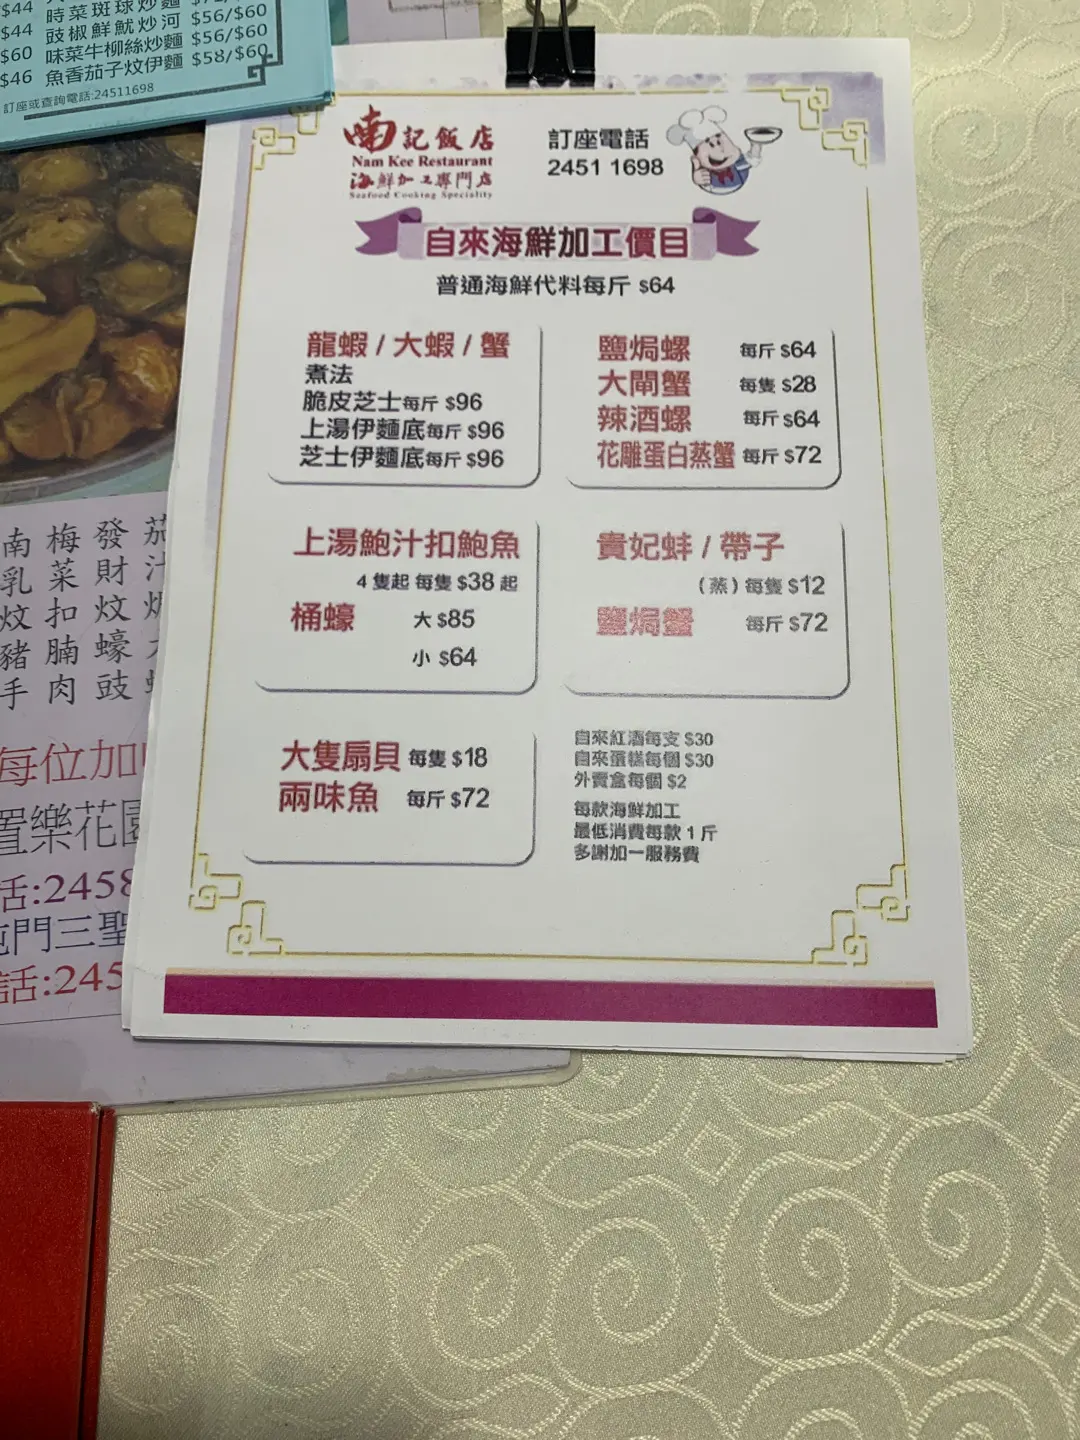 $44
時菜斑球炒麵
$44 豉椒鮮魷炒河 $56/$60
$60 味菜牛柳絲炒麵 $56/$60
$46 魚香茄子炆伊麵 $58/$60
訂座或查詢電話:24511698
南記飯店
Nam Kee Restaurant
海鮮加工專門店
Seafood Cooking Speciality
訂座電話
2451 1698
自來海鮮加工價目
普通海鮮代料每斤 $64
龍蝦 / 大蝦 / 蟹
煮法
脆皮芝士每斤 $96
上湯伊麵底每斤 $96
芝士伊麵底每斤 $96
鹽焗螺 每斤 $64
大閘蟹 每隻 $28
辣酒螺 每斤 $64
花雕蛋白蒸蟹 每斤 $72
上湯鮑汁扣鮑魚
4 隻起 每隻 $38 起
桶蠔 大 $85
小 $64
貴妃蚌 / 帶子
(蒸) 每隻 $12
鹽焗蟹 每斤 $72
大隻扇貝 每隻 $18
兩味魚 每斤 $72
自來紅酒每支 $30
自來蛋糕每個 $30
外賣盒每個 $2
每款海鮮加工
最低消費每款 1 斤
多謝加一服務費
南乳炆豬手
梅菜扣腩肉
發財炆蠔豉
茄汁
每位加
置樂花園
話:2458
屯門三聖
話:245